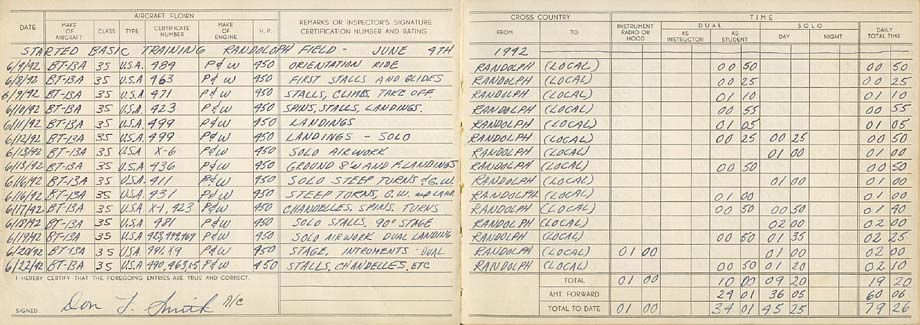 AIRCRAFT FLOWN
DATE MAKE OF AIRCRAFT CLASS TYPE CERTIFICATE NUMBER MAKE OF ENGINE H.P. REMARKS OR INSPECTOR'S SIGNATURE CERTIFICATION NUMBER AND RATING
STARTED BASIC TRAINING RANDOLOPH FIELD - JUNE 4TH
BT-13A 35 U.S.A. 484 P&W 450 ORIENTATION RIDE
6/8/42 BT-13A 35 U.S.A 463 P&W 450 FIRST STALLS AND GLIDES
6/9/42 BT-13A 35 U.S.A 471 P&W 450 STALLS, CLIMBS TAKE OFF.
6/10/42 BT-13A 35 U.S.A 423 P&W 450 SPINS, STALLS, LANDINGS.
6/11/42 BT-13A 35 U.S.A. 499 P&W 450 LANDINGS
6/12/42 BT-13A 35 U.S.A. 499 P&W 450 LANDINGS - SOLO
6/13/42 BT-13A 35 U.S.A. X-6 P&W 450 SOLO AIRWORK
6/15/42 BT-13A 35 U.S.A. 436 P&W 450 GROUND 8'S AND F. LANDINGS
6/16/42 BT-13A 35 U.S.A. 411 P&W 450 SOLO STEEP TURNS & G.W.
6/16/42 BT-13A 35 U.S.A. 431 P&W 450 STEEP TURNS, G.W. AND LAND.
6/17/42 BT-13A 35 U.S.A. X-1, 423 P&W 450 CHANDELLES, SPINS, TURNS
6/18/42 BT-13A 35 U.S.A. 481 P&W 450 SOLO STALLS, 90° STAGE
6/19/42 BT-13A 35 U.S.A. P&W 450 SOLO AIRWORK DUAL LANDING
6/20/42 BT-13A 35 U.S.A P&W 450 STAGE, INTRUMENTS - DUAL
6/22/42 BT-13A 35 U.S.A P&W 450 STALLS, CHANDELLES, ETC
I HEREBY CERTIFY THAT THE FOREGOING ENTRIES ARE TRUE AND CORRECT.
SIGNED Don T. Smith A/C
CROSS COUNTRY TIME
FROM TO INSTRUMENT RADIO OR HOOD DUAL SOLO DAILY TOTAL TIME
AS INSTRUCTOR AS STUDENT DAY NIGHT
1942
RANDOLPH (LOCAL) 00 50 00 50
RANDOLPH (LOCAL) 00 25 00 25
RANDOLPH (LOCAL) 01 10 01 10
RANDOLPH (LOCAL) 00 55 00 55
RANDOLPH (LOCAL) 01 05 01 05
RANDOLPH (LOCAL) 00 25 00 25 00 50
RANDOLPH (LOCAL) 01 00 01 00
RANDOLPH (LOCAL) 00 50 00 50
RANDOLPH (LOCAL) 01 00 01 00
RANDOLPH (LOCAL) 01 00 01 00
RANDOLPH (LOCAL) 00 50 00 50 01 40
RANDOLPH (LOCAL) 02 00 02 00
RANDOLPH (LOCAL) 00 50 01 35 02 25
RANDOLPH (LOCAL) 01 00 01 00 02 00
RANDOLPH (LOCAL) 00 50 01 20 02 10
TOTAL 01 00 10 00 09 20 19 20
AMT. FORWARD 24 01 36 05 60 06
TOTAL TO DATE 01 00 34 01 45 25 79 26